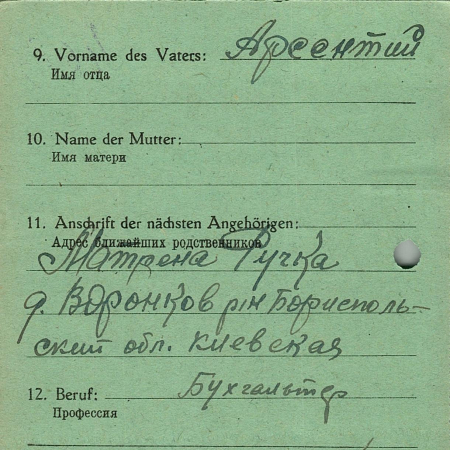 9. Vorname des Vaters: Арсентий
Имя отца
10. Name der Mutter:
Имя матери
11. Anschrift der nächsten Angehörigen:
Адрес ближайших родственников
Матрена Ручка
д. Воронков р-н Борисполь-
ский обл. Киевская
12. Beruf: Бухгалтер
Профессия